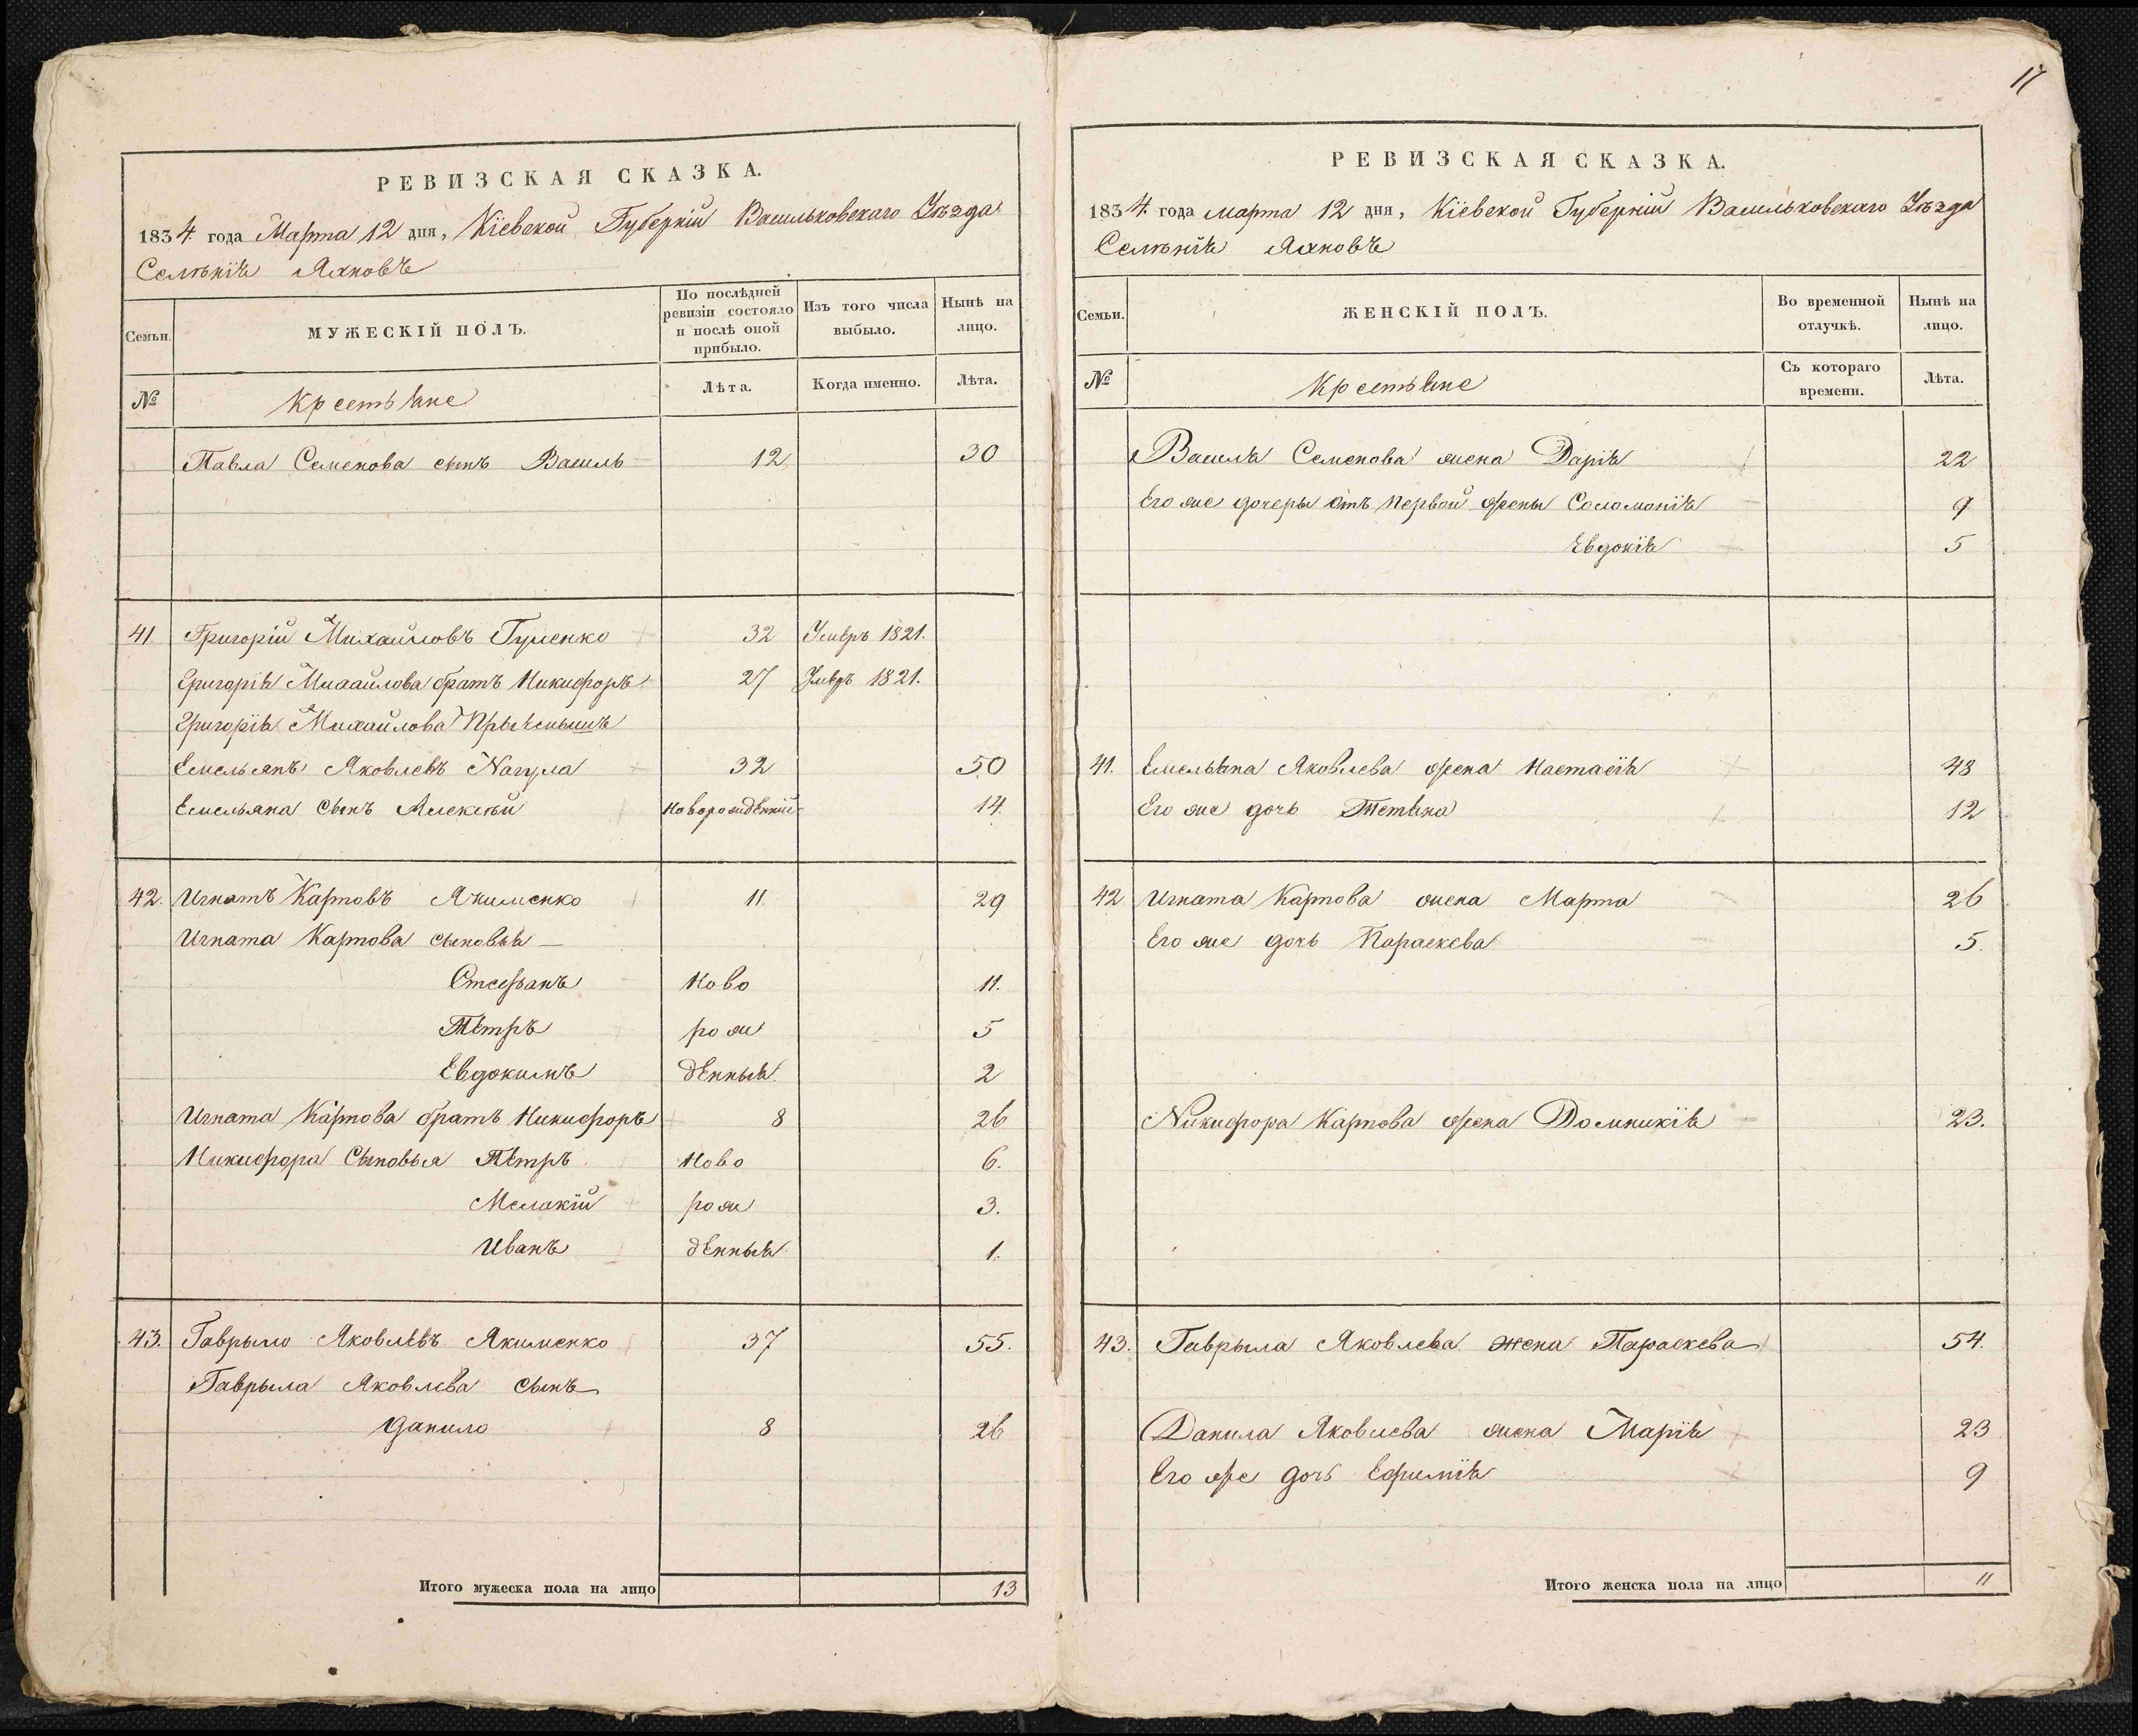 17
РЕВИЗСКАЯ СКАЗКА.
1834. года Марта 12 дня, Кіевской Губерніи Васильковскаго Уѣзда
Селѣнія Яхновъ
Семьи.
МУЖЕСКІЙ ПОЛЪ.
По послѣдней ревизіи состояло и послѣ оной прибыло.
Изъ того числа выбыло.
Нынѣ на лицо.
№ Крестьяне Лѣта. Когда именно. Лѣта.
Павла Семенова сынъ Василь 12 30
41. Григорій Михайловъ Гуменко 32 1821.
Григорія Михайлова братъ Никифоръ 27 1821.
Григорія Михайлова
Емельянъ Яковлевъ Нагула 32 50
Емельяна сынъ Алексѣй новорожденній 14.
42. Игнатъ Карповъ Якименко 11. 29
Игната Карпова сыновья
Стефанъ Ново 11.
Петръ рож 5
Евдокимъ денныя 2
Игната Карпова братъ Никифоръ 8 26
Никифора Сыновья Петръ Ново 6.
Мелакій рож 3.
Иванъ денныя 1.
43. Гаврыло Яковлевъ Якименко 37 55.
Гаврыла Яковлева сынъ
Данило 8 26
Итого мужеска пола на лицо 13
РЕВИЗСКАЯ СКАЗКА.
1834. года марта 12 дня, Кіевской Губерніи Васильковскаго Уѣзда
Селѣнія Яхновъ
Семьи.
ЖЕНСКІЙ ПОЛЪ.
Во временной отлучкѣ.
Нынѣ на лицо.
№ Крестьяне Съ котораго времени. Лѣта.
Василя Семенова жена Дарія 22
Его же дочеры отъ первой жены Соломонія 9
Евдокія 5
41. Емельяна Яковлева жена Настасія 48
Его же дочь Тетяна 12
42 Игната Карпова жена Марта 26
Его же дочь Параскева 5.
Никифора Карпова жена Домникія 23.
43. Гаврыла Яковлева жена Параскева 54.
Данила Яковлева жена Марія 23
Его же дочь Ефимія 9
Итого женска пола на лицо 11